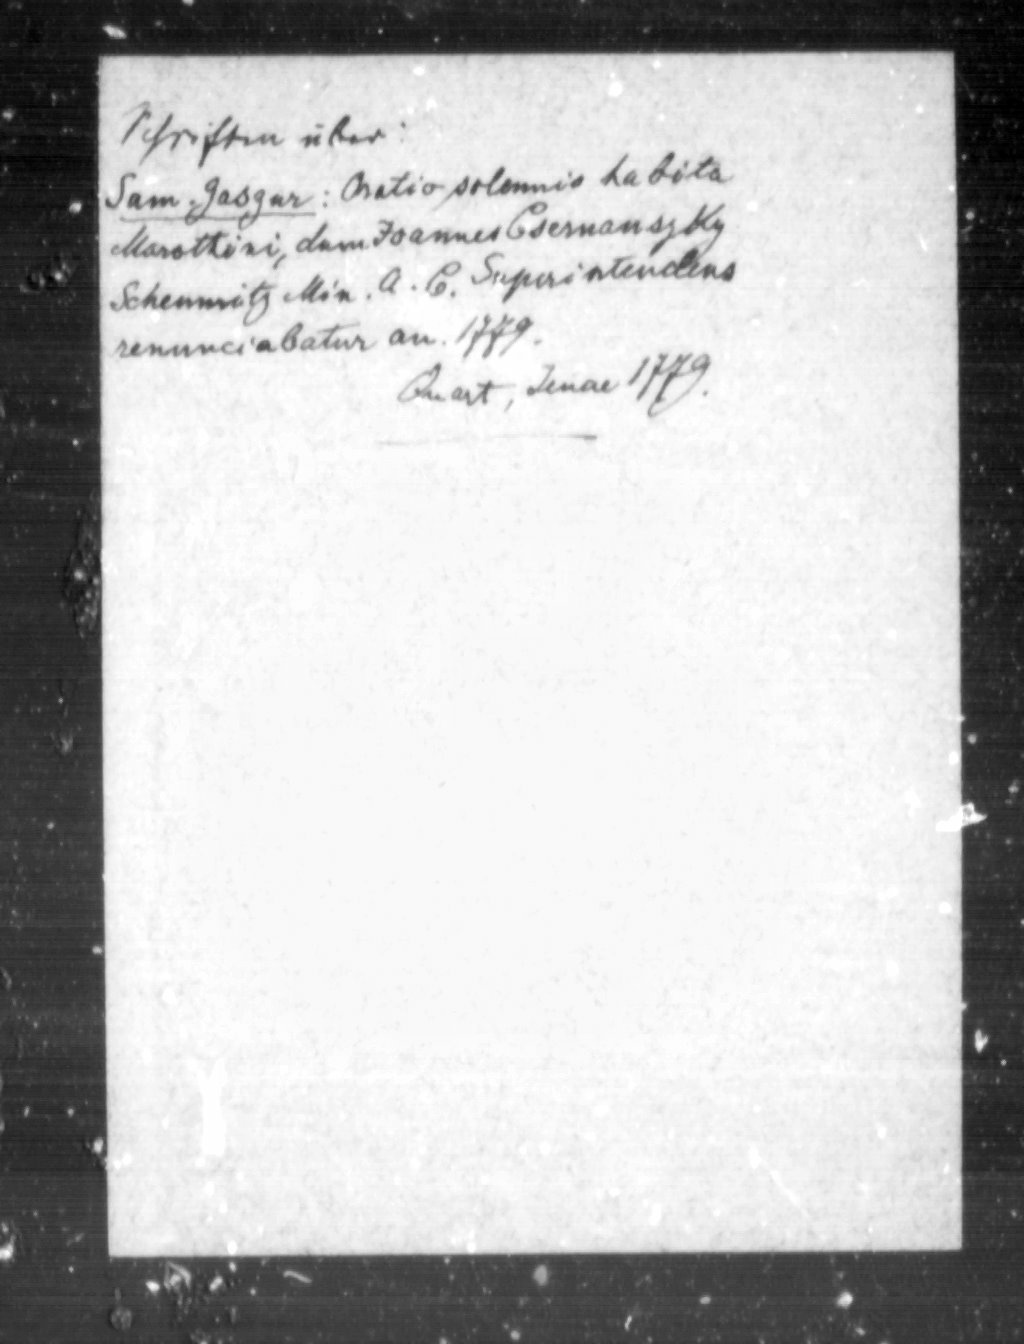 Schriften über:
Sam. Gasgur: Oratio solennis habita
Marothini, dum Joannes Csernanszky
Schemnitz Min. A. C. Superintendens
renunciabatur an. 1779.
Quart, Jenae 1779.